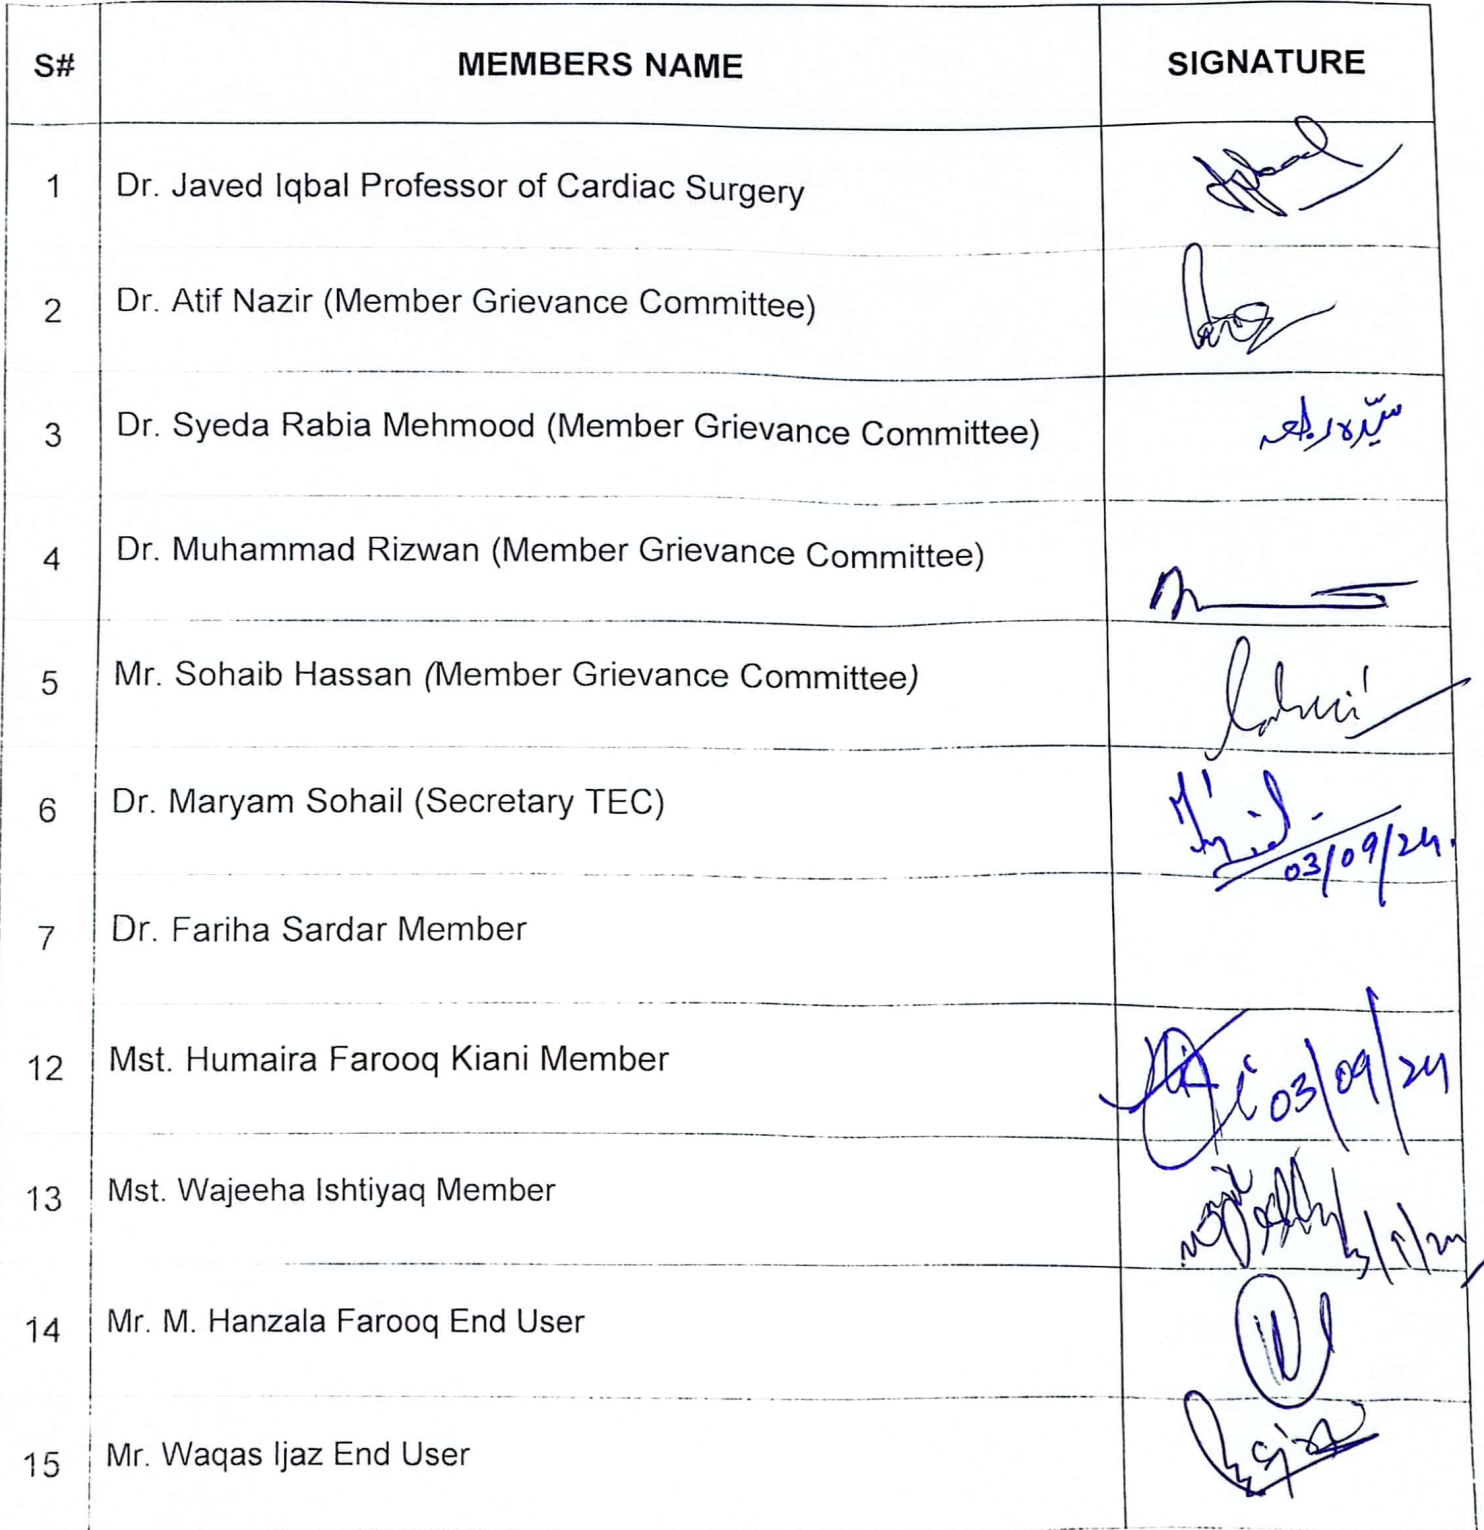 S# MEMBERS NAME SIGNATURE
1 Dr. Javed Iqbal Professor of Cardiac Surgery
2 Dr. Atif Nazir (Member Grievance Committee)
3 Dr. Syeda Rabia Mehmood (Member Grievance Committee) سیّدہ رابعہ
4 Dr. Muhammad Rizwan (Member Grievance Committee)
5 Mr. Sohaib Hassan (Member Grievance Committee)
6 Dr. Maryam Sohail (Secretary TEC)
03/09/24.
7 Dr. Fariha Sardar Member
12 Mst. Humaira Farooq Kiani Member 03/09/24
13 Mst. Wajeeha Ishtiyaq Member
14 Mr. M. Hanzala Farooq End User
15 Mr. Waqas Ijaz End User